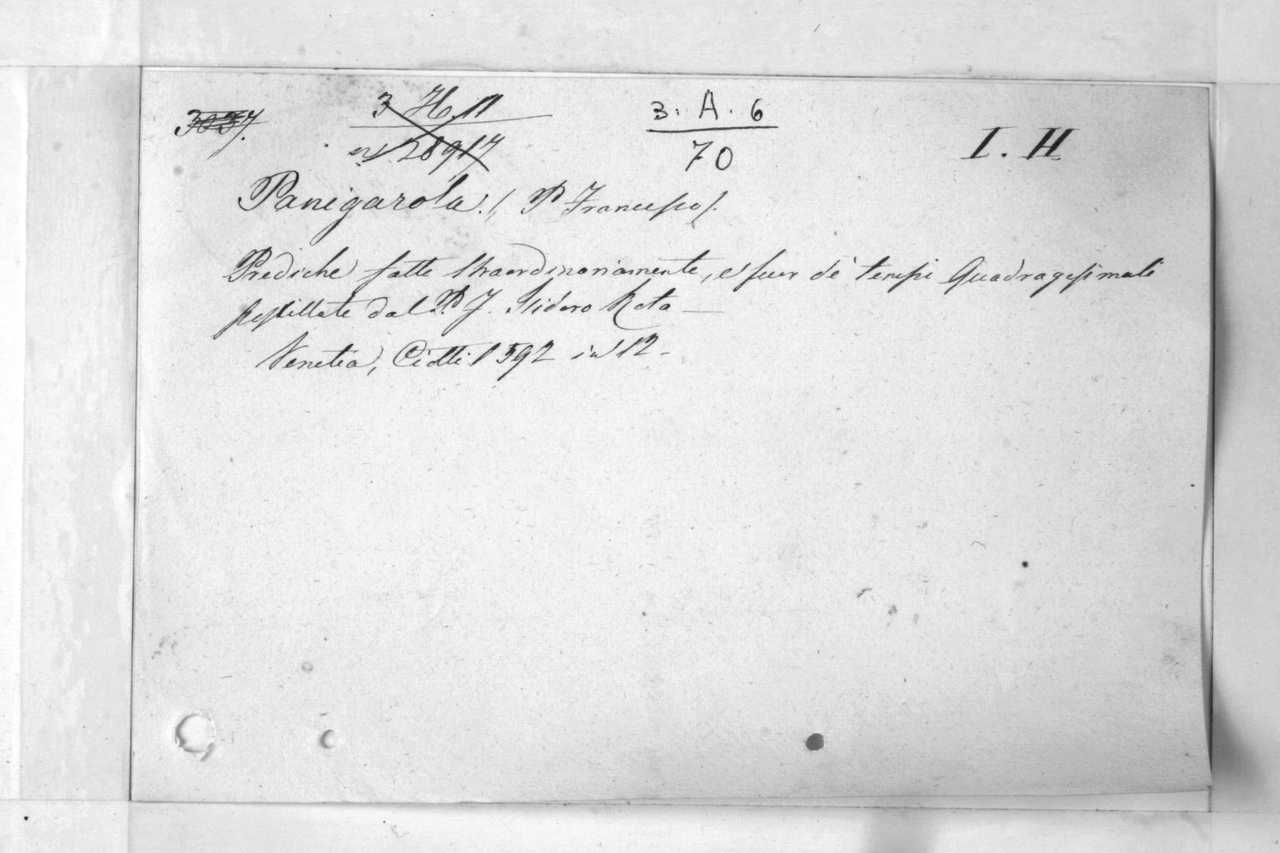 3037. 3 H. 11 3. A. 6 I. H
28917 70
Panigarola. (P Francesco).
Prediche fatte straordinariamente, e fuor de' tempi Quadragesimali
postillate dal P. F. Isidoro Rota —
Venetia, Ciotti 1592 in 12 -